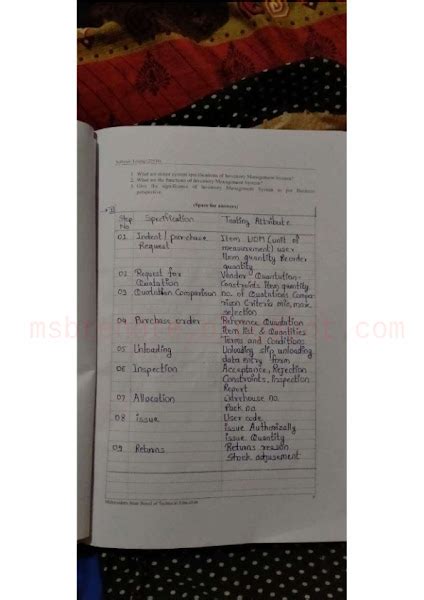 Software Testing (22518)
1. What are minor system specifications of Inventory Management System?
2. What are the functions of Inventory Management System?
3. Give the significance of Inventory Management System as per Business
perspective.
(Space for answers)
Step No. Specification Testing Attribute
01 Indent / purchase Request Item UOM (unit of
measurement) user
Item quantity Reorder
quantity
02 Request for Quotation Vendor Quantation-
Constraints Item quantity
03 Quotation Comparison no. of Quotations Compa-
rision Criteria min, max
selection
04 Purchase order Reference Quotation
Item list & Quantities
Terms and Conditions
05 Unloading Unloading slip unloading
data entry form
06 Inspection Acceptance, Rejection
Constraints, inspection
Report
07 Allocation Warehouse no.
Rack no
08 issue User code
issue Authenticity
issue Quantity
09 Returns Returns reason
Stock adjustement
Maharashtra State Board of Technical Education